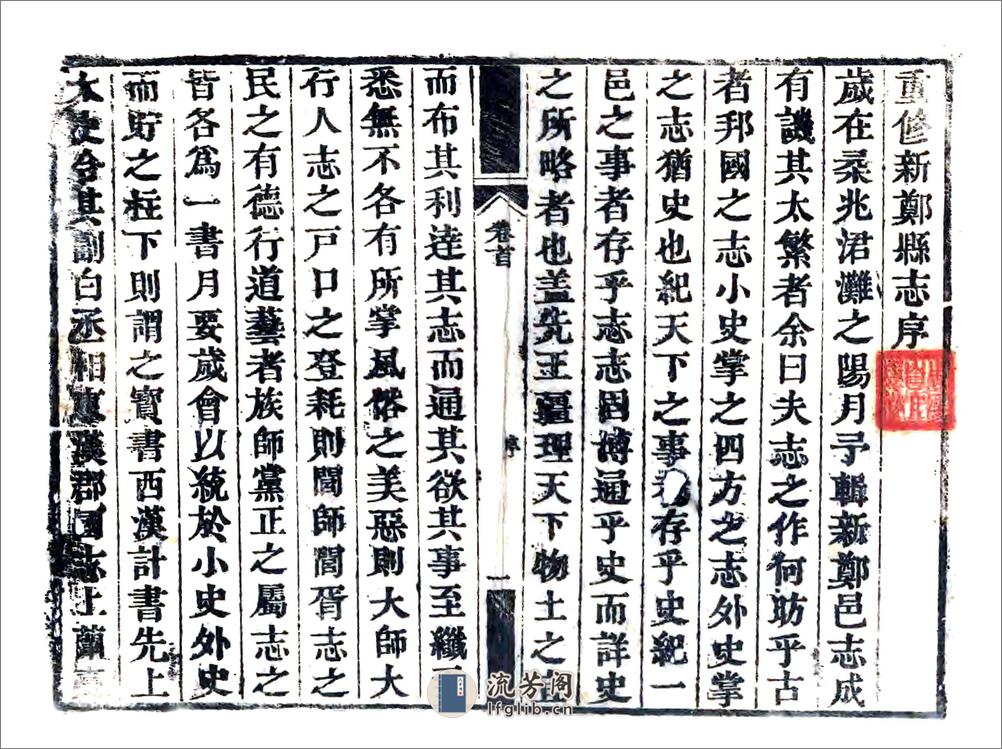 重修新鄭縣志序
歲在柔兆涒灘之陽月予輯新鄭邑志成
有譏其太繁者余曰夫志之作何昉乎古
者邦國之志小史掌之四方之志外史掌
之志猶史也紀天下之事者存乎史紀一
邑之事者存乎志志固博通乎史而詳史
之所略者也盖先王疆理天下物土之宜
卷首
序
一
而布其利逹其志而通其欲其事至纖
悉無不各有所掌風俗之美惡則大師大
行人志之戸口之登耗則閭師閭胥志之
民之有德行道藝者族師黨正之屬志之
皆各爲一書月要歲會以統於小史外史
而貯之柱下則謂之寶書西漢計書先上
太史公其副白丞相東漢郡國志上蘭臺
流芳阁
lfglib.cn